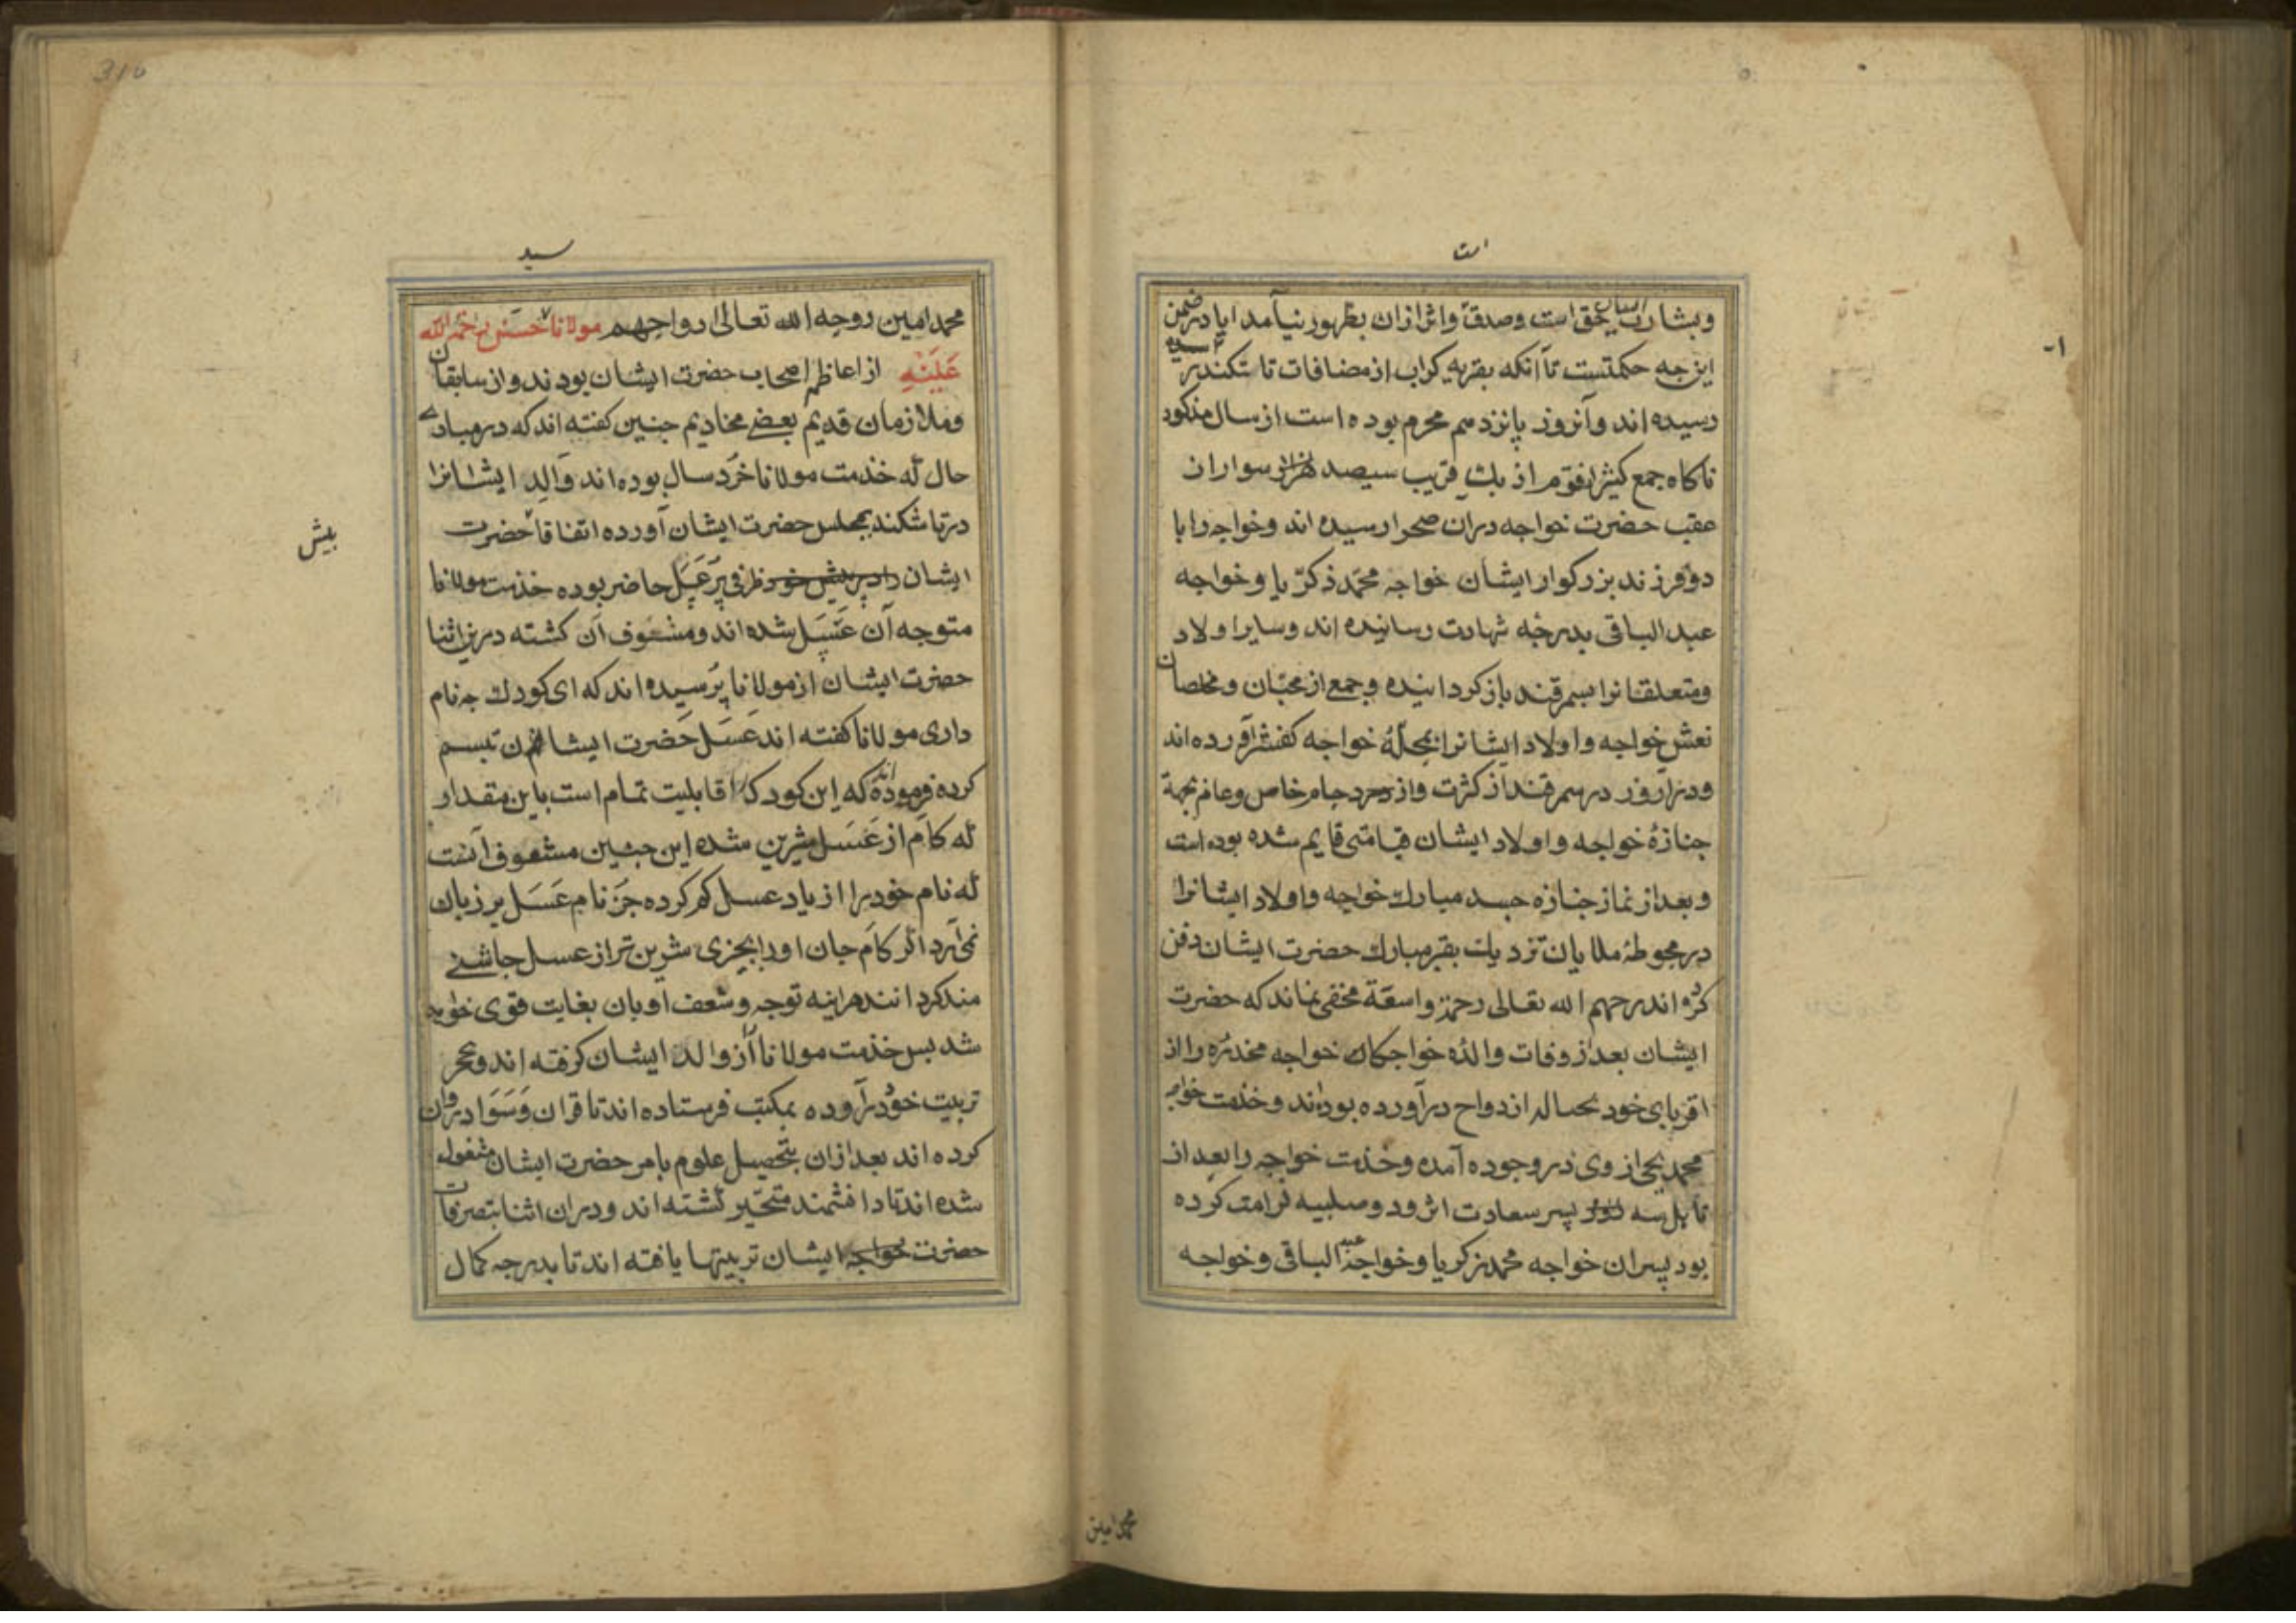 است
وبشارت ایشان حق است وصدق واثر ازان بظهور نیامد ایا در ضمن
این چه حکمتست تا آنکه بقریه کراب از مضافات تاشکند
رسیده اند وآنروز پانزدهم محرم بوده است از سال مذکور
ناکاه جمع کثیر از قوم ازبک قریب سیصد سواران
عقب حضرت خواجه دران صحرا رسیده اند وخواجه را با
دو فرزند بزرکوار ایشان خواجه محمد ذکریا وخواجه
عبد الباقی بدرجه شهادت رسانیده اند وسایر اولاد
ومتعلقانرا بسمرقند باز کردانیده وجمع از محبان ومخلصان
نعش خواجه واولاد ایشانرا بمحله خواجه کفشیر آورده اند
ودرانروز در سمرقند از کثرت وازدحام خاص وعام بجهة
جنازۀ خواجه واولاد ایشان قیامتی قایم شده بوده است
وبعد از نماز جنازه جسد مبارک خواجه واولاد ایشانرا
در محوطۀ ملایان نزدیک بقبر مبارک حضرت ایشان دفن
کرده اند رحمهم الله تعالی رحمة واسعة مخفی نماند که حضرت
ایشان بعد از وفات والدۀ خواجکان خواجه مخدره را از
اقربای خود بحباله ازدواج در آورده بوده اند وخدمت خواجه
محمد یحیی از وی در وجوده آمده وخدمت خواجه را بعد از
تاهل سه پسر سعادت اثر ودو صلبیه کرامت کرده
بود پسران خواجه محمد زکریا وخواجه عبد الباقی وخواجه
محمد امین
310
سید
محمد امین روحه الله تعالی ارواحهم مولانا حسن رحمة الله
علیه از اعاظم اصحاب حضرت ایشان بودند واز سابقان
وملازمان قدیم بعضی مخادیم جنین کفته اند که در مبادی
حال که خدمت مولانا خرد سال بوده اند والد ایشانرا
در تاشکند بمجلس حضرت ایشان آورده اتفاقا حضرت
ایشان را در پیش خود ظرفی پر عسل حاضر بوده خدمت مولانا
پیش
متوجه آن عسل شده اند ومشغوف آن کشته درین اثنا
حضرت ایشان از مولانا پرسیده اند که ای کودک چه نام
داری مولانا کفته اند عسل حضرت ایشان تبسم
کرده فرموده اند که این کودک را قابلیت تمام است باین مقدار
که کام از عسل شیرین شده این جنین مشعوف آنست
که نام خود را از یاد عسل کم کرده جز نام عسل بر زبان
نمی آرد اکر کام جان او را بچیزی شرین تر از عسل جاشنی
مند کردانند هراینه توجه وشعف او بان بغایت قوی خواهد
شد بس خدمت مولانا را از والد ایشان کرفته اند ودر حجر
تربیت خود در آورده بمکتب فرستاده اند تا قران وسواد روان
کرده اند بعد ازان بتحصیل علوم بامر حضرت ایشان مشغول
شده اند تا دانشمند متبحر کشته اند ودران اثنا بتصرفات
حضرت خواجه ایشان تربیتها یافته اند تا بدرجه کمال